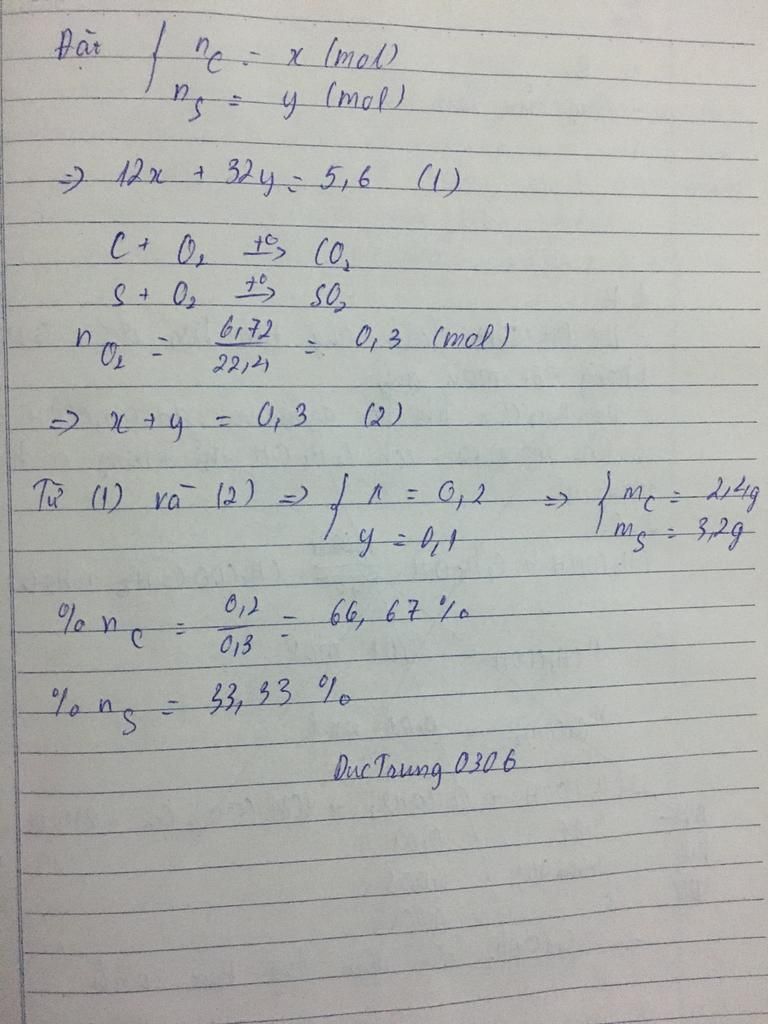 Đặt { n_C = x (mol)
n_S = y (mol)
=> 12x + 32y = 5,6 (1)
C + O₂ →(t°) CO₂
S + O₂ →(t°) SO₂
n_O₂ = 6,72/22,4 = 0,3 (mol)
=> x + y = 0,3 (2)
Từ (1) và (2) => { x = 0,2 => { m_C = 2,4g
y = 0,1 m_S = 3,2g
% n_C = 0,2/0,3 = 66,67 %
% n_S = 33,33 %
DucTrung0306